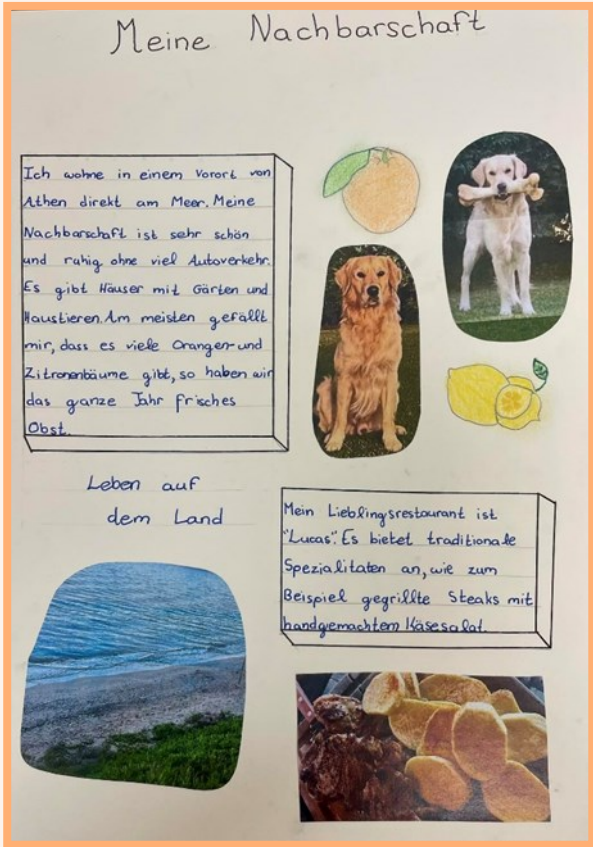 Meine Nachbarschaft
Ich wohne in einem Vorort von
Athen direkt am Meer. Meine
Nachbarschaft ist sehr schön
und ruhig ohne viel Autoverkehr.
Es gibt Häuser mit Gärten und
Haustieren. Am meisten gefällt
mir, dass es viele Orangen-und
Zitronenbäume gibt, so haben wir
das ganze Jahr frisches
Obst.
Leben auf
dem Land
Mein Lieblingsrestaurant ist
"Lucas". Es bietet traditionale
Spezialitäten an, wie zum
Beispiel gegrillte Steaks mit
handgemachtem Käsesalat.